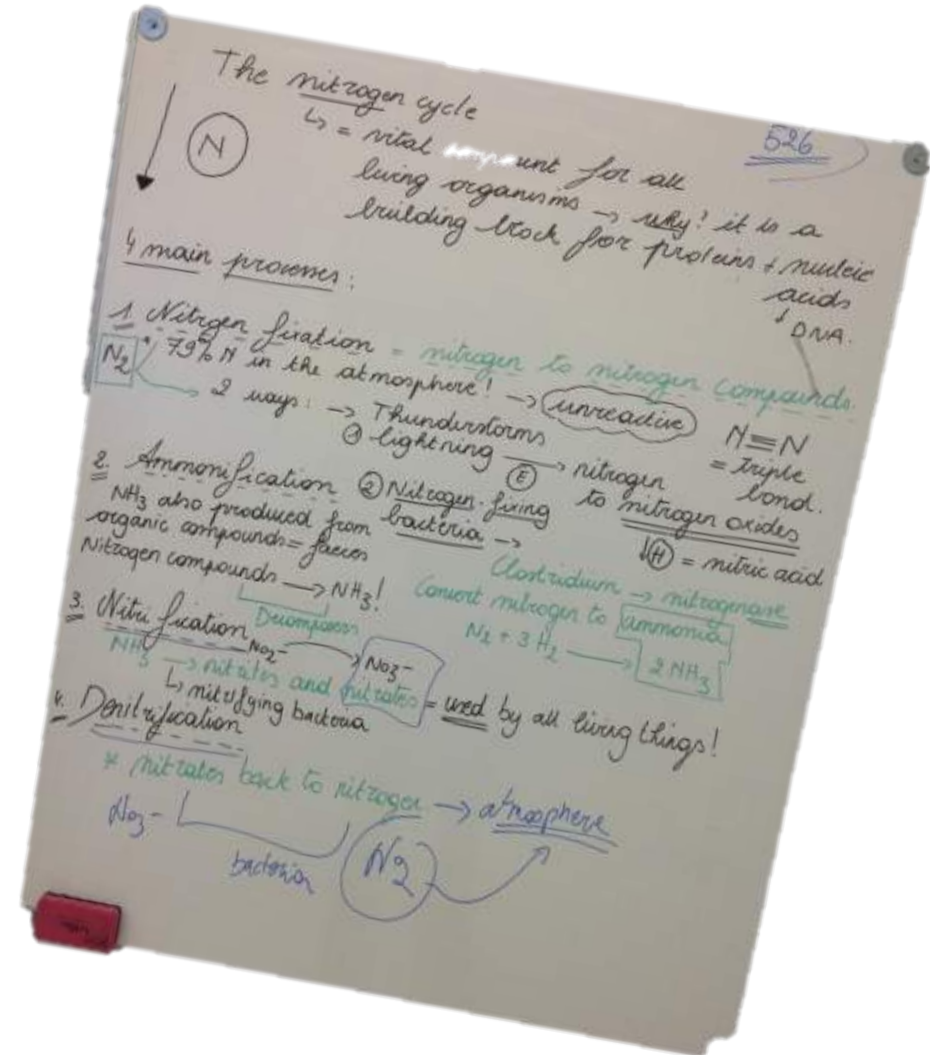 The nitrogen cycle
526
N
↳ = vital unt for all
living organisms → why? it is a
building block for proteins + nucleic
acids
↓ DNA.
4 main processes:
1. Nitrgen fixation = nitrogen to nitrogen compounds.
N2 * 79% N in the atmosphere! → unreactive
N≡N
= triple
bond.
2 ways: → Thunderstorms
① lightning → nitrogen
Ⓔ to nitrogen oxides
↓ Ⓗ = nitric acid
② Nitrogen-fixing
bacteria →
Clostridium → nitrogenase
Convert nitrogen to ammonia
N2 + 3 H2 → 2 NH3
2. Ammonification
NH3 also produced from
organic compounds = faeces
Nitrogen compounds → NH3!
Decomposers
3. Nitrification
No2- → No3-
NH3 → nitrates and nitrates = used by all living things!
↳ nitrifying bacteria
4. Denitrification
* nitrates back to nitrogen → atmosphere
No3-
bacteria
N2